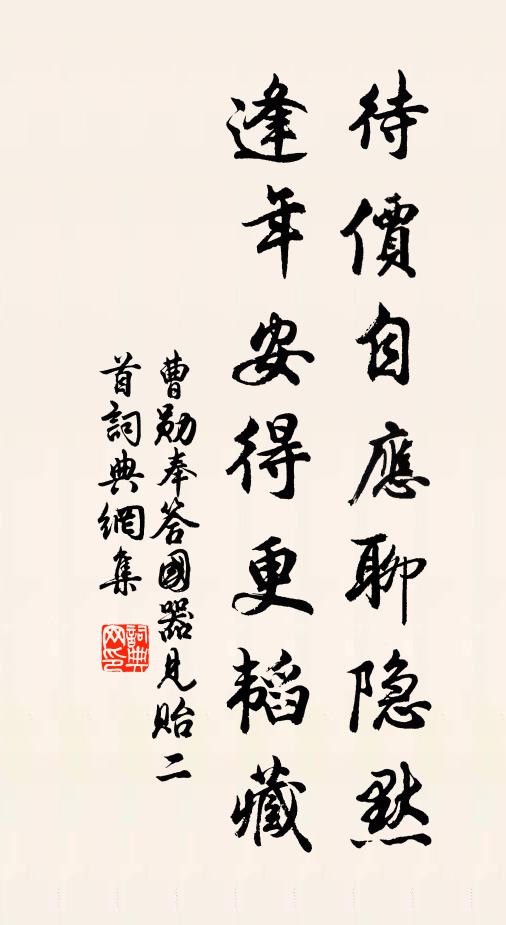 待價自應聊隐默
逢年安得更韬藏
曹勛奉答國器見貽二
首詞典網集
詞典
网印